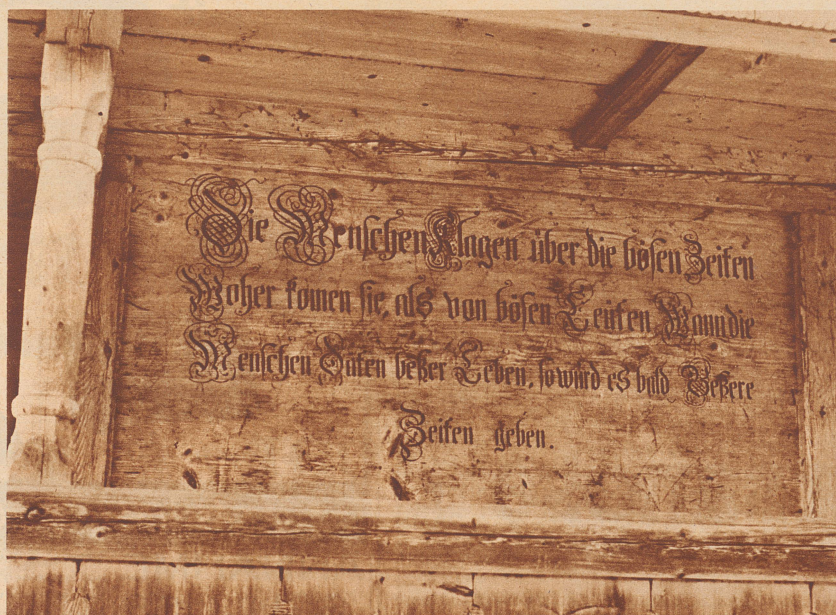 Die Menschen Klagen über die bösen Zeiten
Woher komen sie, als von bösen Leuten, Wann die
Menschen Däten beßer Leben, so würd es bald Beßere
Zeiten geben.